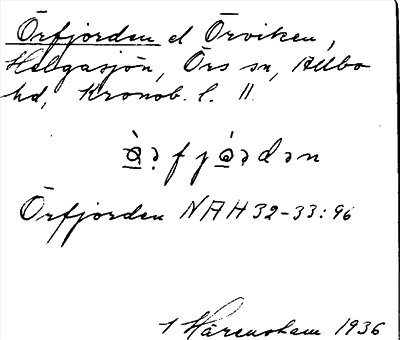 Örfjorden el Örviken,
Helgasjön, Örs sn, Allbo
hd, Kronob. l. 11.
fj d n
Örfjorden NAH 32-33:96
1 Härenstam 1936